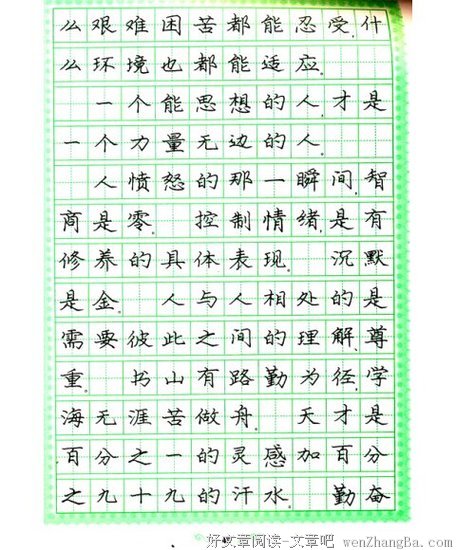 么艰难困苦都能忍受,什
么环境也都能适应.
一个能思想的人,才是
一个力量无边的人.
人愤怒的那一瞬间,智
商是零. 控制情绪,是有
修养的具体表现. 沉默
是金. 人与人相处的是
需要彼此之间的理解、尊
重. 书山有路勤为径,学
海无涯苦做舟. 天才是
百分之一的灵感加百分
之九十九的汗水. 勤奋
好文章阅读-文章吧 wenZhangBa.com